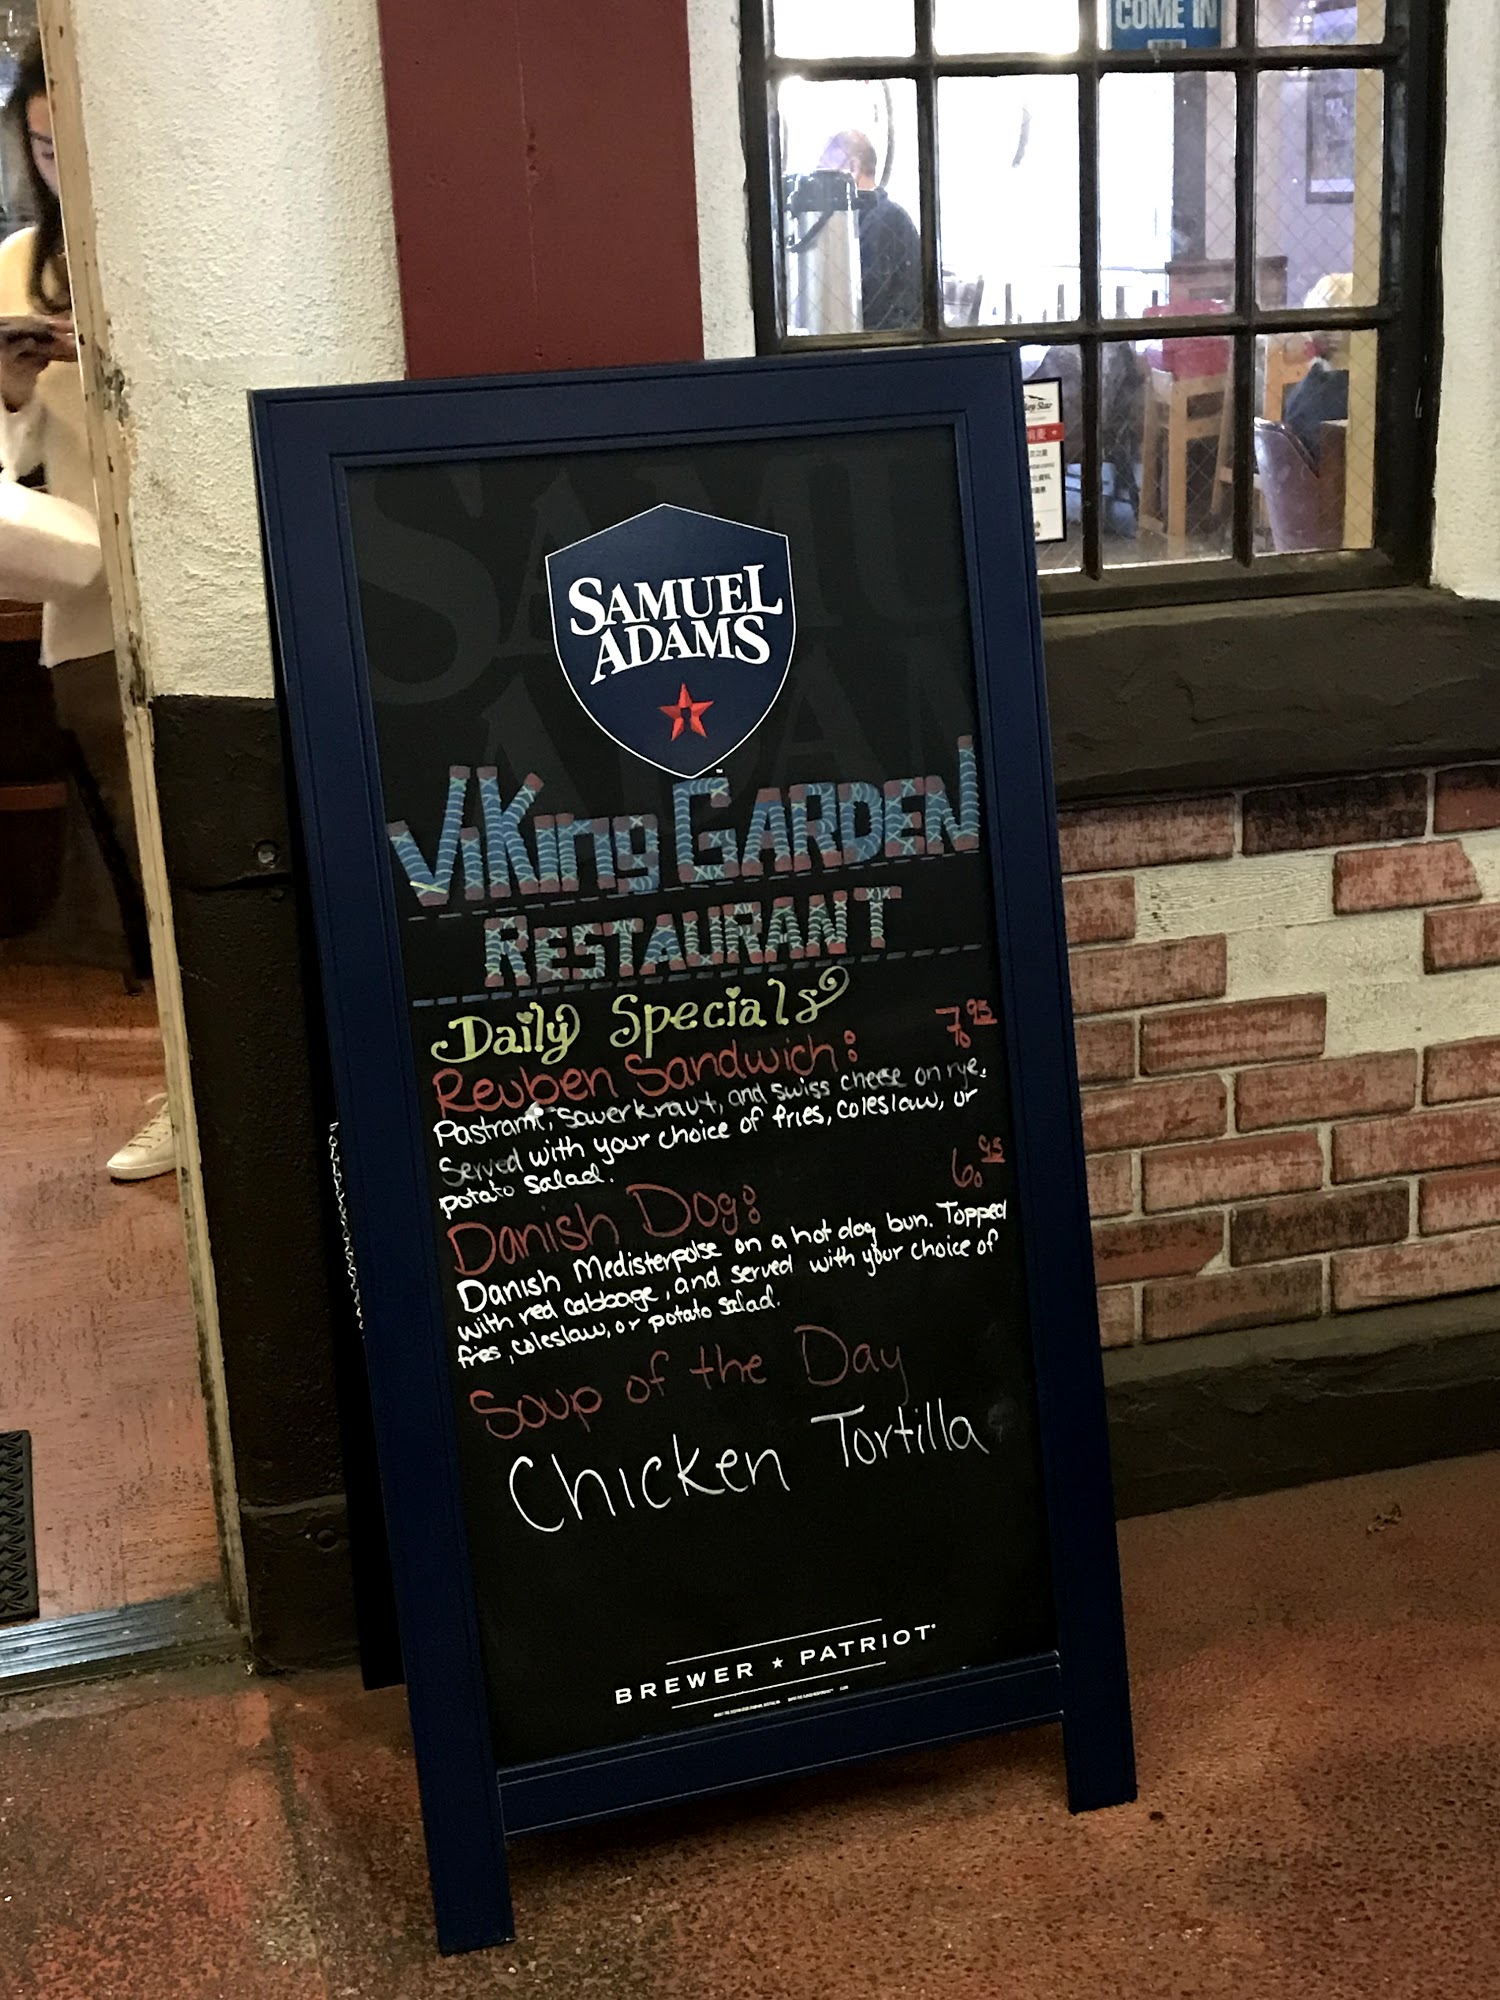 COME IN
SAMUEL
ADAMS
VIKing GARDEN
RESTAURANT
Daily Specials
Reuben Sandwich: 7.95
Pastrami, Sauerkraut, and swiss cheese on rye.
Served with your choice of fries, coleslaw, or
potato salad.
Danish Dog: 6.95
Danish Medisterpolse on a hot dog bun. Topped
with red cabbage, and served with your choice of
fries, coleslaw, or potato salad.
Soup of the Day
Chicken Tortilla
BREWER ★ PATRIOT